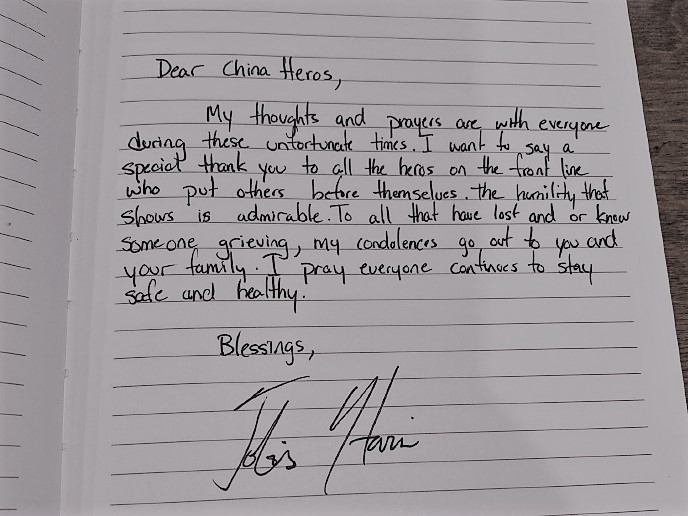 Dear China Heros,
My thoughts and prayers are with everyone
during these unfortunate times. I want to say a
special thank you to all the heros on the front line
who put others before themselves. The humility that
shows is admirable. To all that have lost and or know
someone grieving, my condolences go out to you and
your family. I pray everyone continues to stay
safe and healthy.
Blessings,